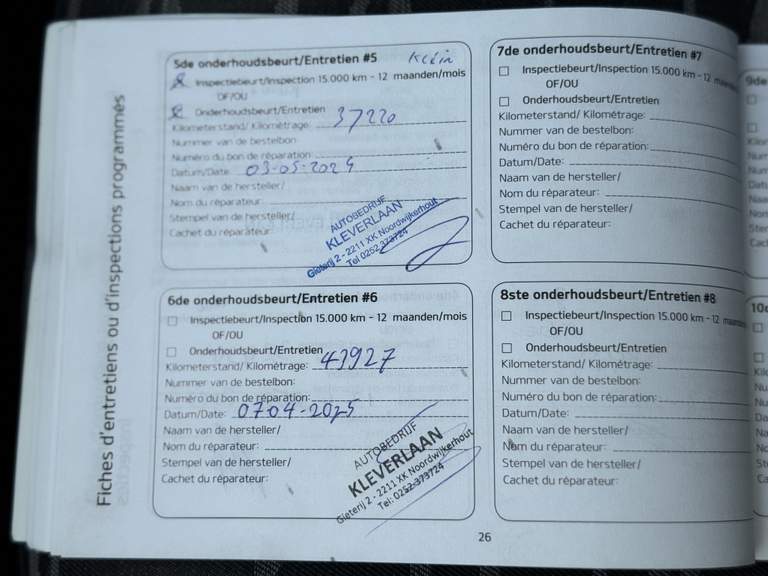 Fiches d'entretiens ou d'inspections programmés
5de onderhoudsbeurt/Entretien #5 Klein
Inspectiebeurt/Inspection 15.000 km - 12 maanden/mois
OF/OU
Onderhoudsbeurt/Entretien
Kilometerstand/ Kilométrage: 37220
Nummer van de bestelbon:
Numéro du bon de réparation:
Datum/Date: 03-05-2024
Naam van de hersteller/
Nom du réparateur:
Stempel van de hersteller/
Cachet du réparateur:
AUTOBEDRIJF
KLEVERLAAN
Gieterij 2 - 2211 XK Noordwijkerhout
Tel 0252 373724
6de onderhoudsbeurt/Entretien #6
Inspectiebeurt/Inspection 15.000 km - 12 maanden/mois
OF/OU
Onderhoudsbeurt/Entretien
Kilometerstand/ Kilométrage: 43927
Nummer van de bestelbon:
Numéro du bon de réparation:
Datum/Date: 07-04-2025
Naam van de hersteller/
Nom du réparateur:
Stempel van de hersteller/
Cachet du réparateur:
AUTOBEDRIJF
KLEVERLAAN
Gieterij 2 - 2211 XK Noordwijkerhout
Tel: 0252-373724
7de onderhoudsbeurt/Entretien #7
Inspectiebeurt/Inspection 15.000 km - 12 maanden
OF/OU
Onderhoudsbeurt/Entretien
Kilometerstand/ Kilométrage:
Nummer van de bestelbon:
Numéro du bon de réparation:
Datum/Date:
Naam van de hersteller/
Nom du réparateur:
Stempel van de hersteller/
Cachet du réparateur:
8ste onderhoudsbeurt/Entretien #8
Inspectiebeurt/Inspection 15.000 km - 12 maanden
OF/OU
Onderhoudsbeurt/Entretien
Kilometerstand/ Kilométrage:
Nummer van de bestelbon:
Numéro du bon de réparation:
Datum/Date:
Naam van de hersteller/
Nom du réparateur:
Stempel van de hersteller/
Cachet du réparateur:
26
9de